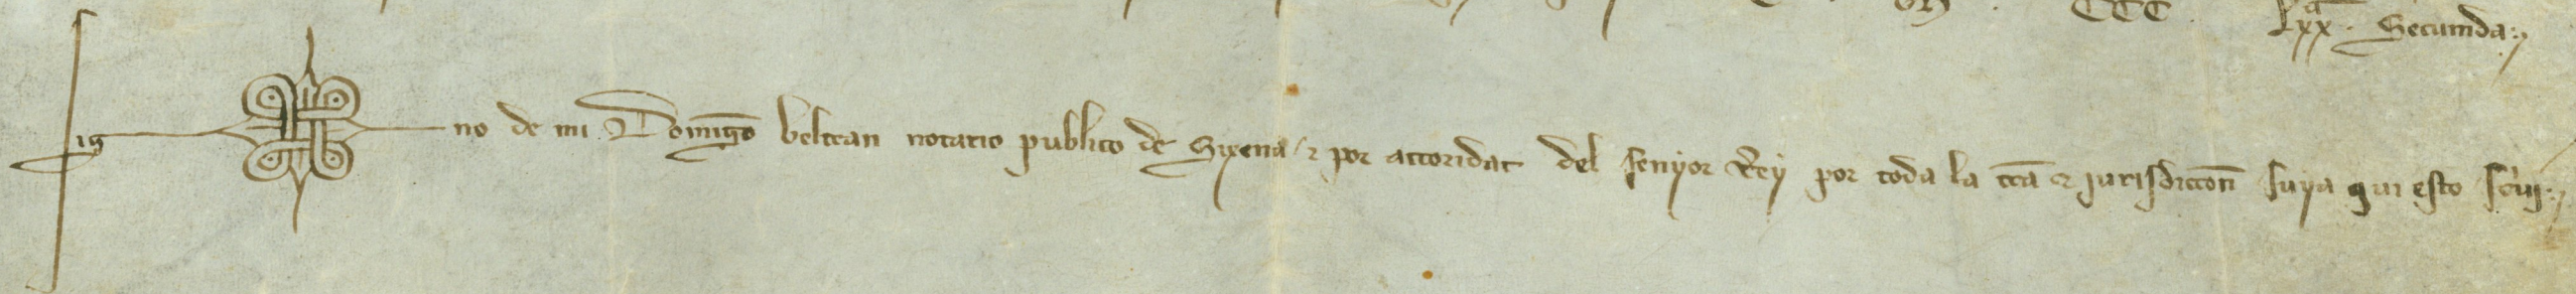 M CCC Lxxª Secunda
Sig no de mi Domīgo beltran notario publico de Sixena & por actoridat del senyor Rey por toda la tr̄a & jurisdiccōn suya qui esto sc̄vi